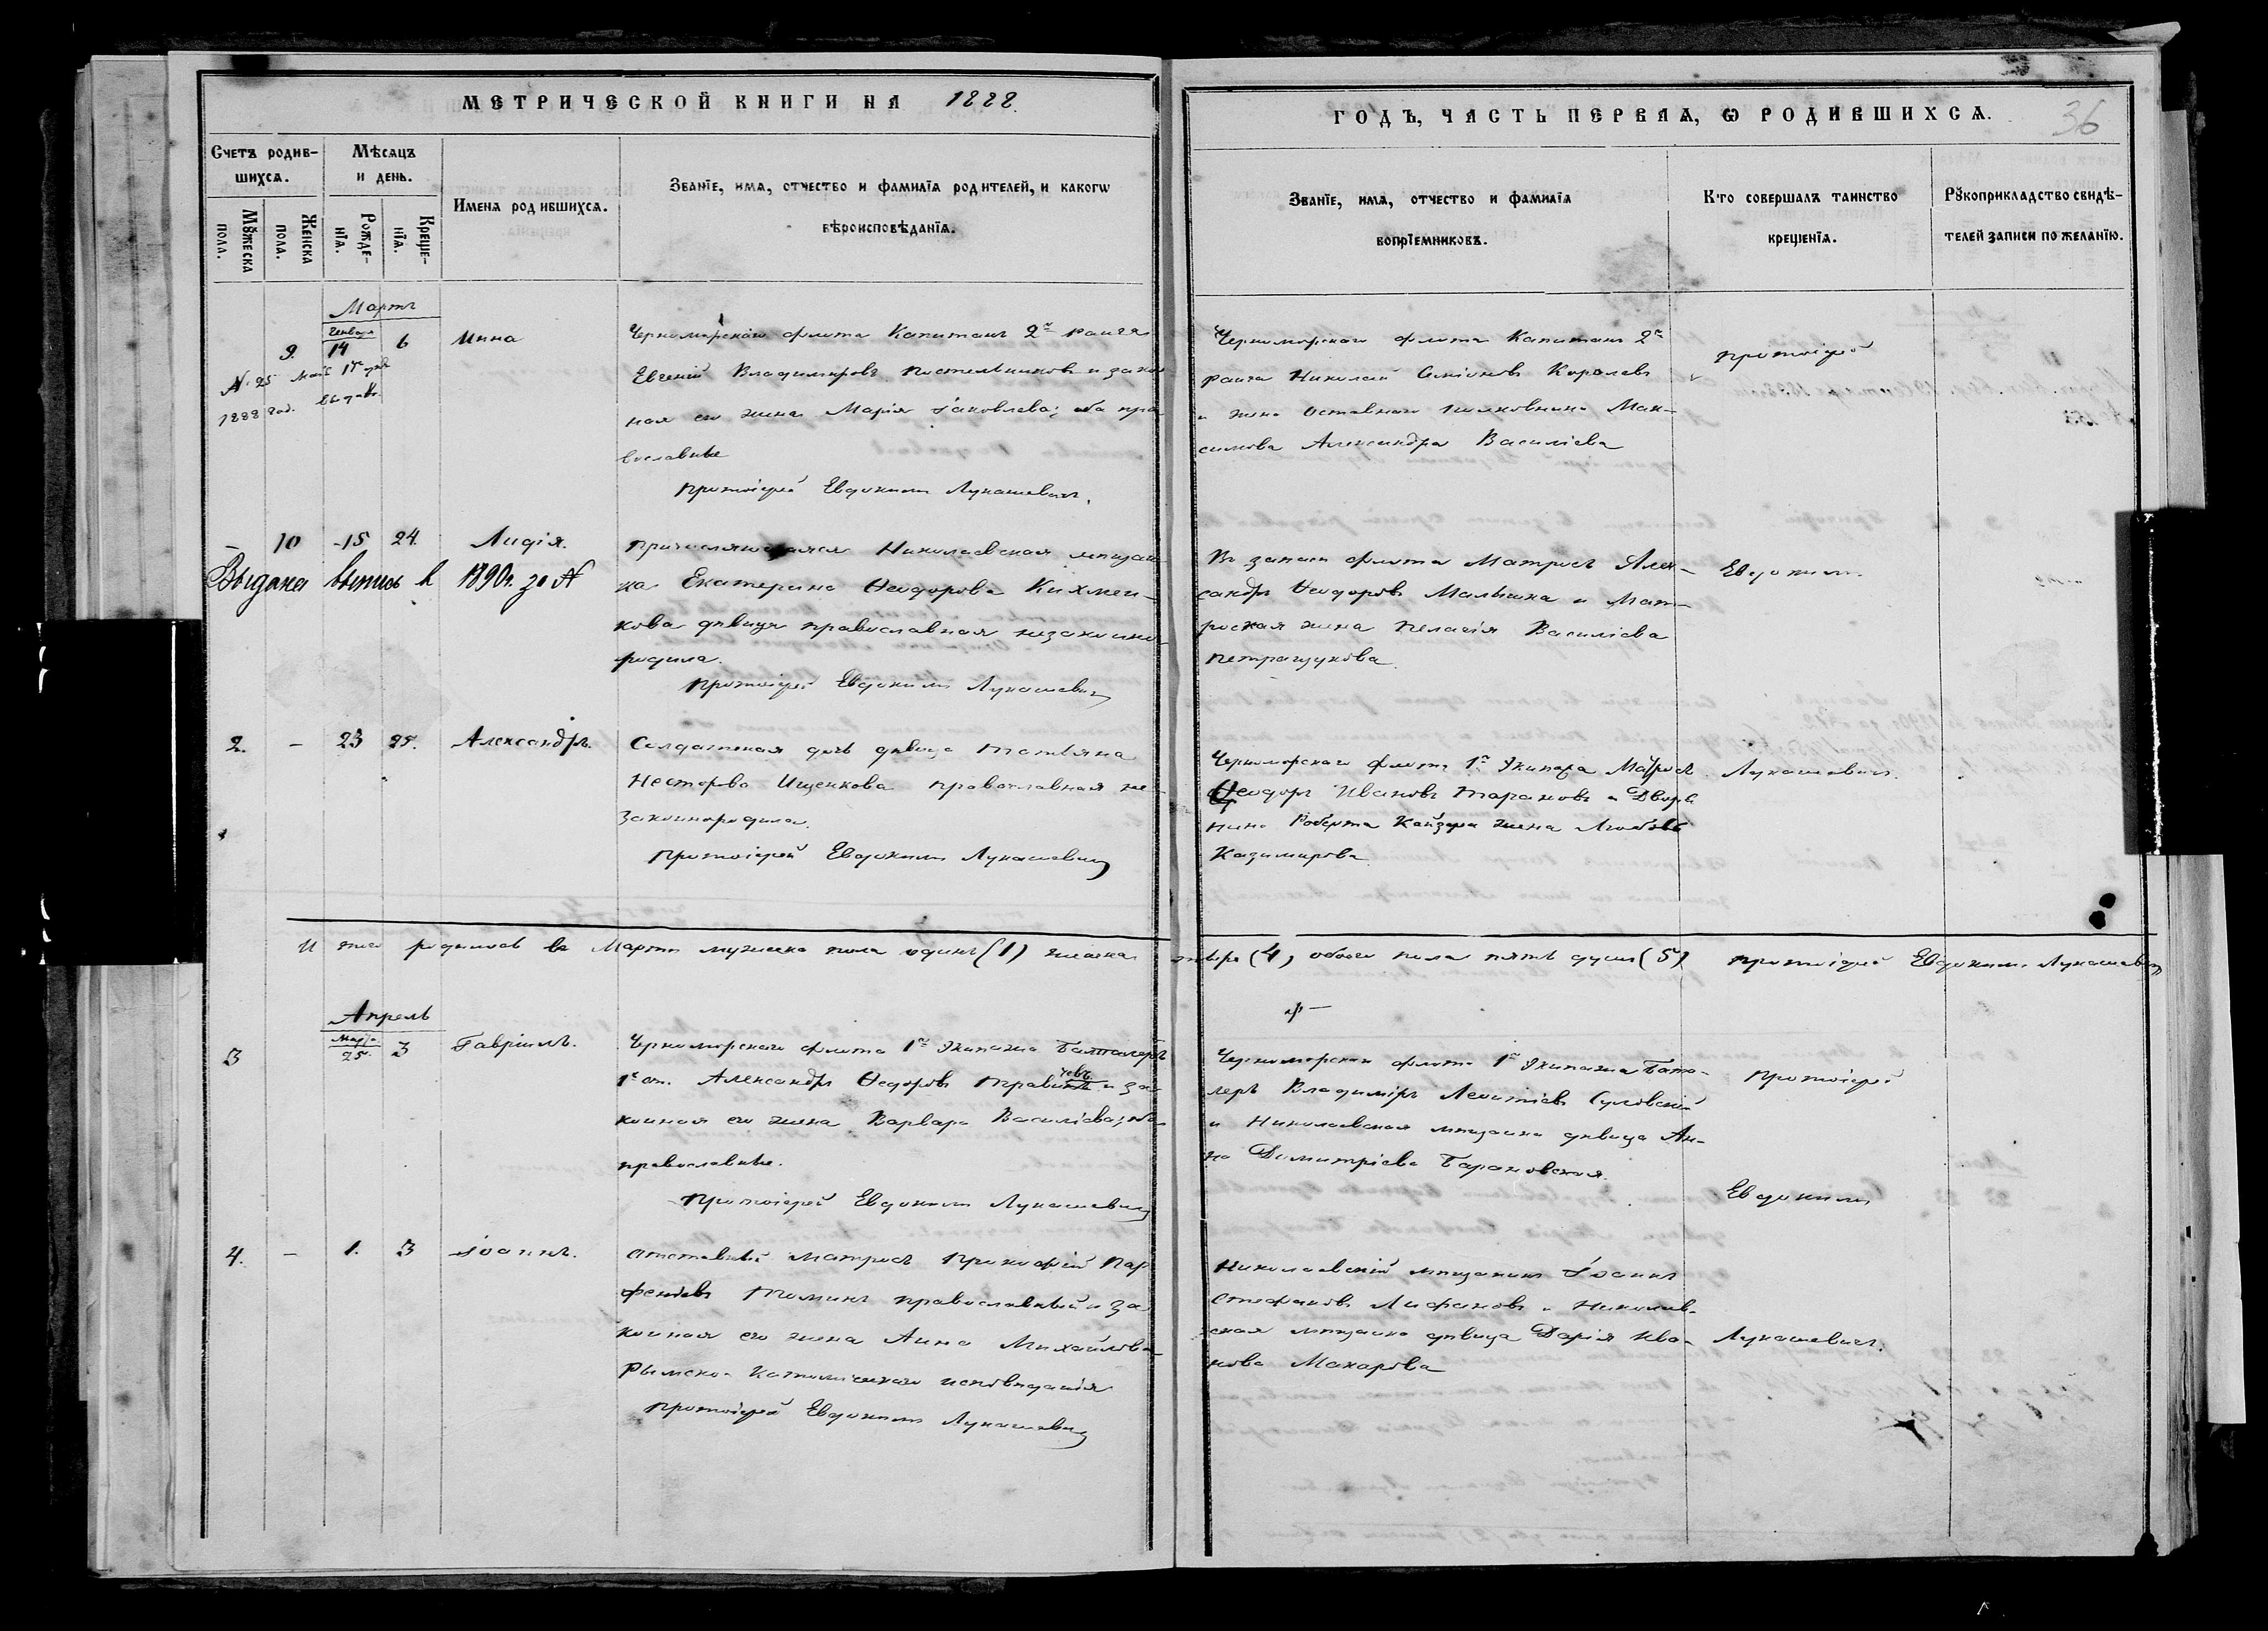 МЕТРИЧЕСКОЙ КНИГИ НА 1888.
ГОДЪ, ЧАСТЬ ПЕРВАѦ, Ѡ РОДИВШИХСѦ.
36
Счетъ родив-
шихсѧ.
Мѣсѧцъ
и день.
Мꙋжеска
пола.
Женска
пола.
Рожде-
нїѧ.
Креще-
нїѧ.
Имена родившихсѧ.
Званїе, имѧ, отчество и фамилїѧ родителей, и какогѡ
вѣроисповѣданїѧ.
Званїе, имѧ, отчество и фамилїѧ
вопрїемниковъ.
Кто совершалъ таинство
крещенїѧ.
Рꙋкоприкладство свидѣ-
телей записи по желанїю.
Мартъ
9. Января 14 6
№ 25
1888 год.
Черноморскаго флота Капитанъ 2го ранга
Евгеній Владиміровъ Постельниковъ и закон
ная его жена Марія Іаковлева; оба пра
вославные
Протоіерей Евдокимъ Лукашевичъ.
Черноморскаго флота Капитанъ 2го
ранга Николай Симіоновъ Королевъ
и жена отставнаго полковника Мак-
симова Александра Василіева
Протоіерей
– 10 15 24. Лидія.
Выдана выпись в 1890 г. за №
Николаевская мѣщан
ка Екатерина Ѳеодорова Кихмен-
кова дѣвица православная незаконно
родила.
Протоіерей Евдокимъ Лукашевич
Въ запасѣ флота Матросъ Алек-
сандръ Ѳеодоровъ Малыхина и Мат-
роская жена Пелагія Василіева
Петращукова.
Евдокимъ
2. – 23 25. Александръ.
Солдатская дочь дѣвица Татьяна
Несторова Ищенкова православная не-
законнородила.
Протоіерей Евдокимъ Лукашевич
Черноморскаго флота 1го Экипажа Матросъ
Ѳеодоръ Ивановъ Тарановъ и Дворя
нина Роберта Кайзера жена Любовь
Казимирова
Лукашевичъ.
Итого родилось въ Мартѣ мужеска пола одинъ (1) женска четыре (4), обоего пола пять душъ (5) Протоіерей Евдокимъ Лукашевич
Апрель
3 Марта 25. 3 Гавріилъ.
Черноморскаго флота 1го Экипажа Баталеръ
1й ст. Александръ Ѳедоровъ и за
конная его жена Варвара Василіева; оба
православные.
Протоіерей Евдокимъ Лукашевич
Черноморскаго флота 1го Экипажа Бата-
леръ Владиміръ Леонтіевъ Суловскій
и Николаевская мѣщанка дѣвица Ан-
на Димитріева Барановская.
Протоіерей
Евдокимъ
4. – 1. 3 Іоаннъ.
Отставный матросъ Прокофій Пар
феніевъ Томинъ православный и за
конная его жена Анна Михайлова
Римско-Католическаго исповѣданія
Протоіерей Евдокимъ Лукашевич
Николаевскій мѣщанинъ Іоаннъ
Стефановъ Лифановъ и Николаев-
ская мѣщанка дѣвица Дарія Ива-
нова Макарова
Лукашевичъ.